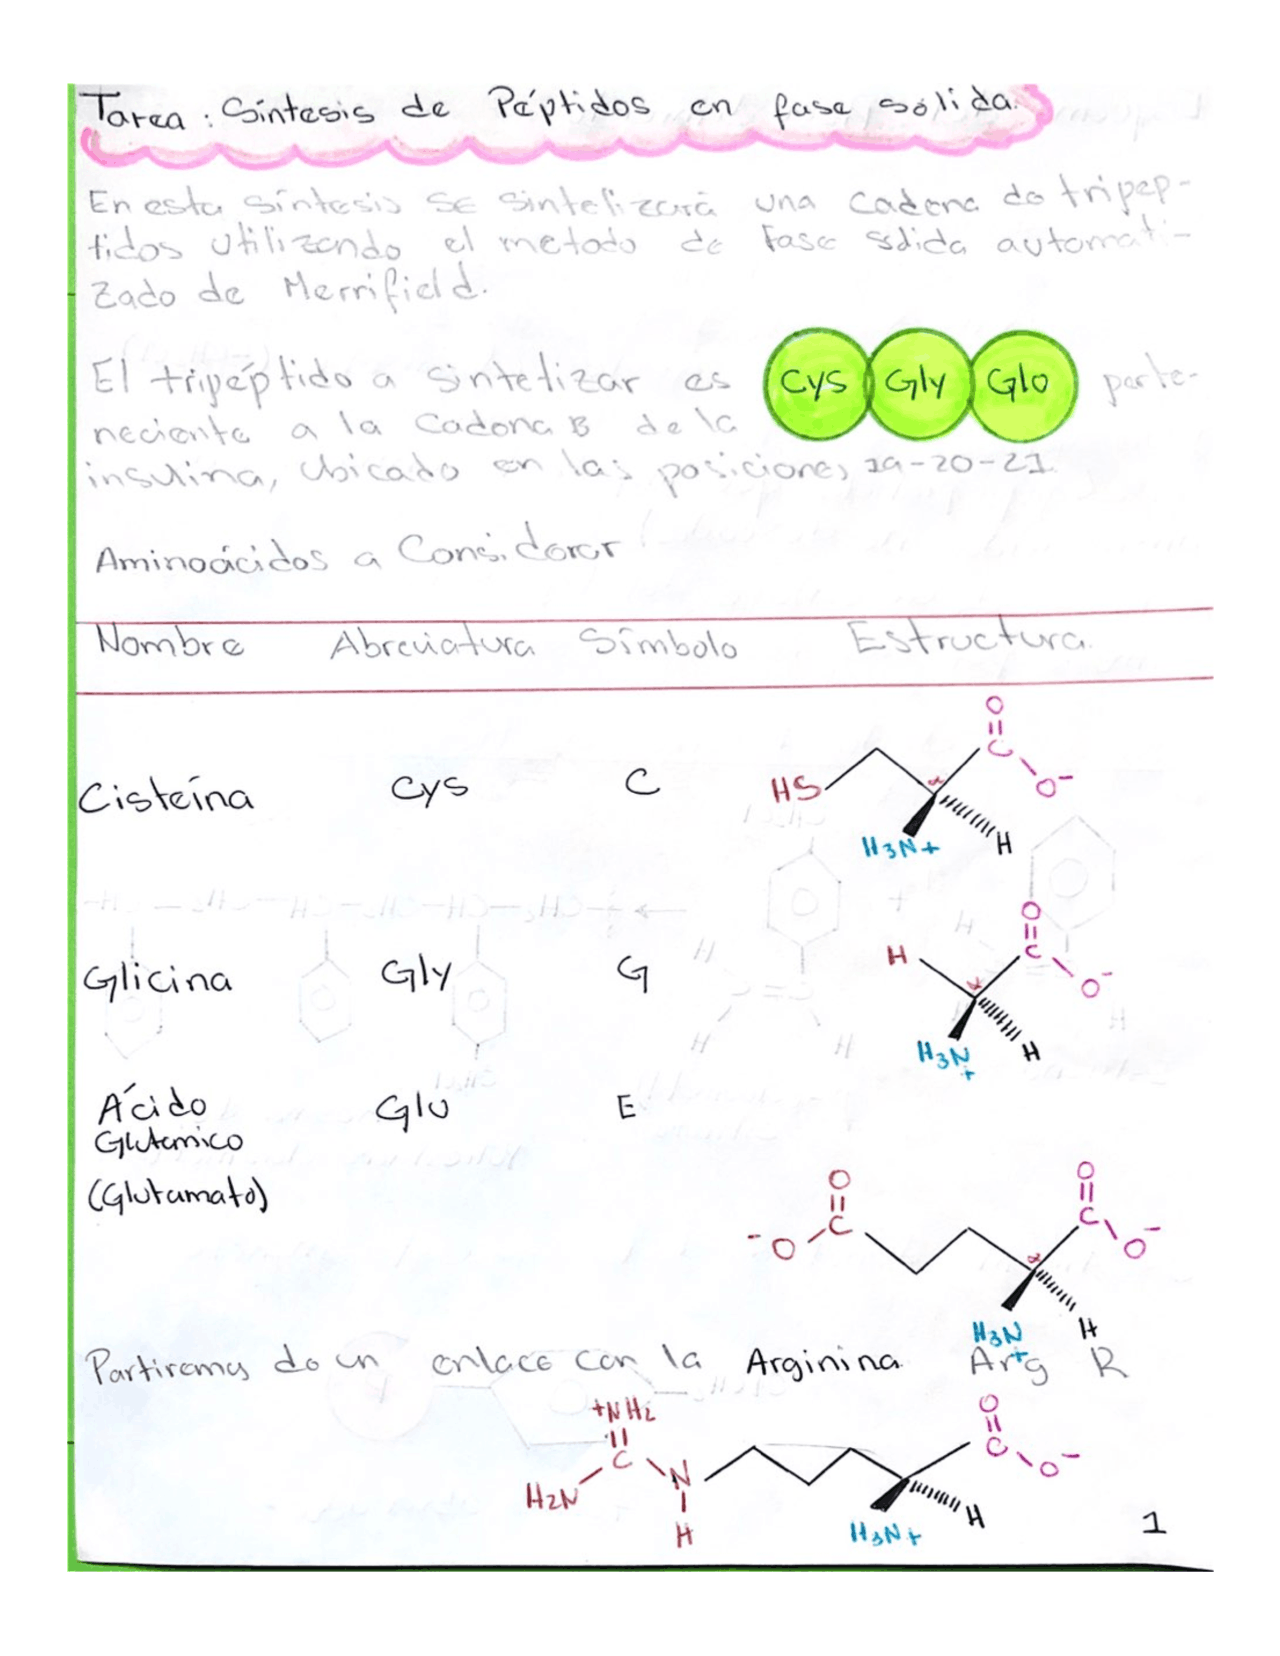 Tarea: Síntesis de Péptidos en fase sólida.
En esta síntesis se sintetizará una cadena de tripép-
tidos utilizando el metodo de fase sólida automati-
zado de Merrifield.
El tripéptido a sintetizar es Cys Gly Glu perte-
neciente a la cadena B de la
insulina, ubicado en las posiciones 19-20-21.
Aminoácidos a Considerar
Nombre Abreviatura Símbolo Estructura.
Cisteína Cys C
HS H3N+ H C O O-
Glicina Gly G
H H3N+ H C O O-
Ácido Glu E
Glutamico
(Glutamato)
-O C O H3N+ H C O O-
Partiremos de un enlace con la Arginina. Arg R
+NH2
H2N C N H H3N+ H C O O-
1